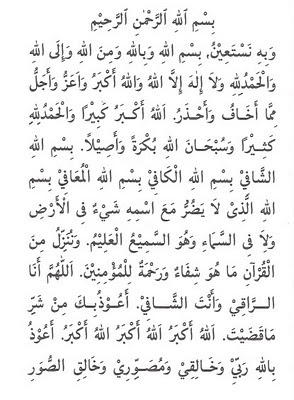 بِسْمِ اللهِ الرَّحْمٰنِ الرَّحِيْمِ
وَبِهِ نَسْتَعِيْنُ, بِسْمِ اللهِ وَبِاللهِ وَمِنَ اللهِ وَإِلَى اللهِ
وَالْحَمْدُلِلهِ وَلاَ إِلٰهَ إِلاَّ اللهُ وَاللهُ أَكْبَرُ وَأَعَزُّ وَأَجَلُّ
مِمَّا أَخَافُ وَأَحْذَرُ. اَللهُ أَكْبَرُ كَبِيْرًا وَالْحَمْدُلِلهِ
كَثِيْرًا وَسُبْحَانَ اللهِ بُكْرَةً وَأَصِيْلًا. بِسْمِ اللهِ
الشَّافِيْ بِسْمِ اللهِ الْكَافِيْ بِسْمِ اللهِ الْمُعَافِيْ بِسْمِ
اللهِ الَّذِىْ لَا يَضُرُّ مَعَ اسْمِهِ شَيْءٌ فِى الْأَرْضِ
وَلَا فِى السَّمَاءِ وَهُوَ السَّمِيْعُ الْعَلِيْمُ. وَنُنَزِّلُ مِنَ
الْقُرْآنِ مَا هُوَ شِفَاءٌ وَرَحْمَةٌ لِلْمُؤْمِنِيْنَ. اَللّٰهُمَّ أَنَا
الـرَّاقِيْ وَأَنْتَ الشَّـافِيْ. أَعُوْذُبِـكَ مِنْ شَرِّ
مَاقَضَيْتَ. اَللهُ أَكْبَرُ اَللهُ أَكْبَرُ اَللهُ أَكْبَرُ. أَعُوْذُ
بِاللهِ رَبِّيْ وَخَـالِقِيْ وَمُصَـوِّرِيْ وَخَالِقِ الصُّوَرِ